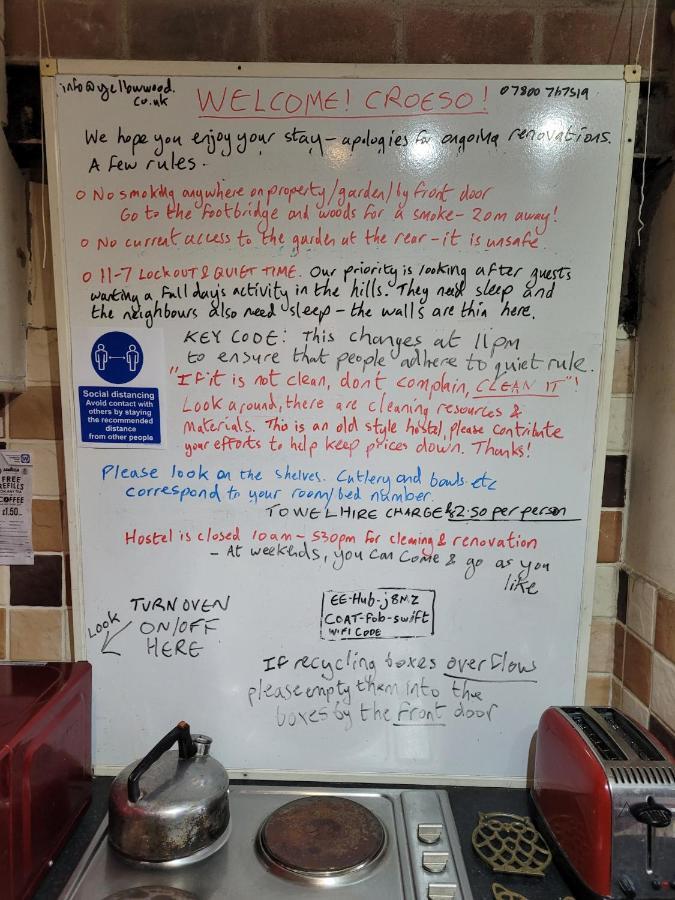 info@yellowwood.
co.uk
WELCOME! CROESO!
07800 767519
We hope you enjoy your stay - apologies for ongoing renovations.
A few rules.
o No smoking anywhere on property/garden/by front door
Go to the footbridge and woods for a smoke - 20m away!
o No current access to the garden at the rear - it is unsafe.
o 11-7 LOCKOUT & QUIET TIME. Our priority is looking after guests
wanting a full day's activity in the hills. They need sleep and
the neighbours also need sleep - the walls are thin here.
KEY CODE: This changes at 11pm
to ensure that people adhere to quiet rule.
"If it is not clean, dont complain, CLEAN IT"!
Look around, there are cleaning resources &
materials. This is an old style hostel, please contribute
your efforts to help keep prices down. Thanks!
Social distancing
Avoid contact with
others by staying
the recommended
distance
from other people
Please look on the shelves. Cutlery and bowls etc
correspond to your room/bed number.
TOWEL HIRE CHARGE £2.50 per person
Hostel is closed 10am - 530pm for cleaning & renovation
- At weekends, you can come & go as you
like
FREE
REFILLS
COFFEE
£1.50
LOOK
TURN OVEN
ON/OFF
HERE
EE-Hub-j8NZ
COAT-fob-swift
WIFI CODE
If recycling boxes overflow
please empty them into the
boxes by the front door